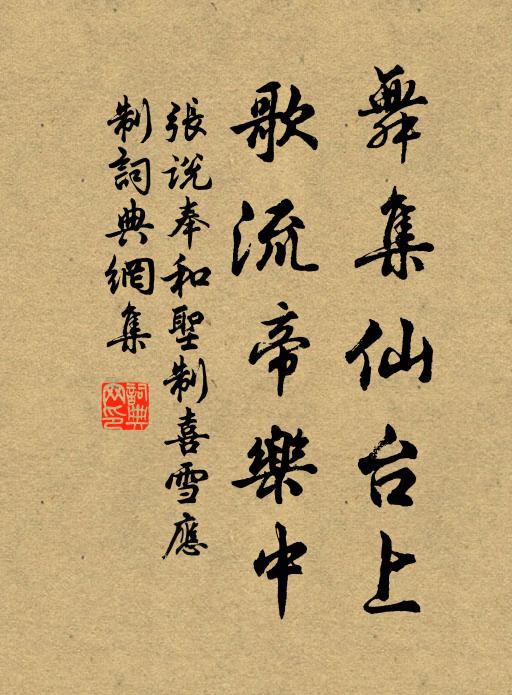 舞集仙台上
歌流帝樂中
張說奉和聖制喜雪應
制詞典網集
詞典網印